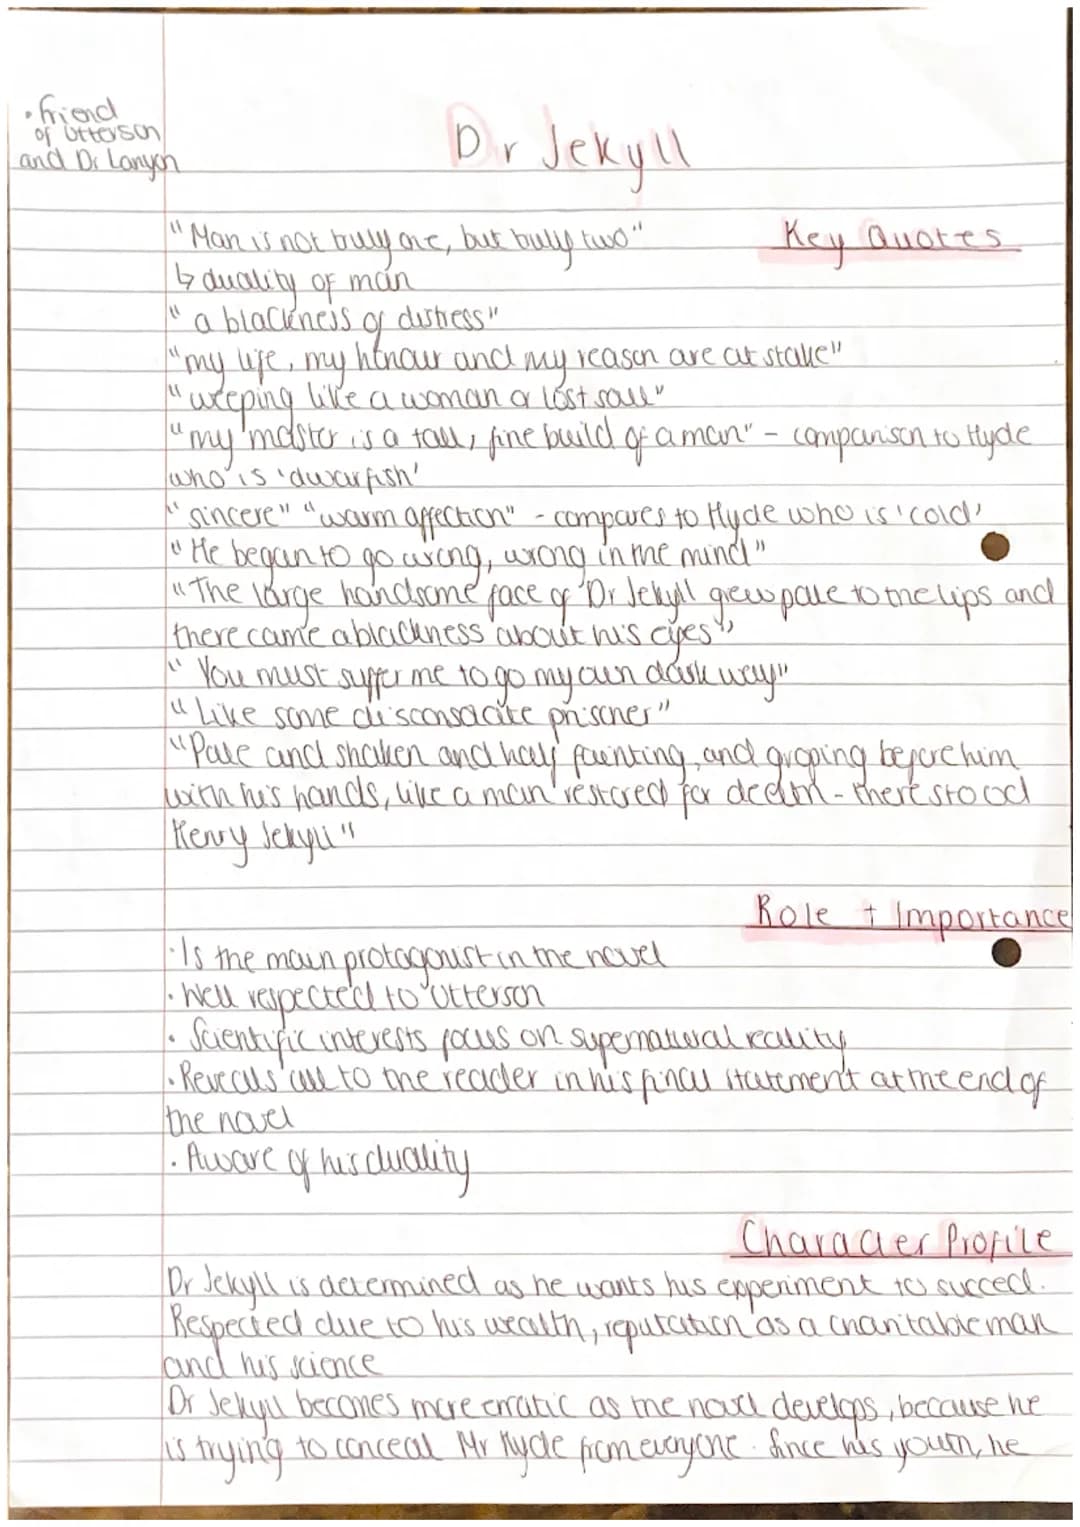 • friend
of Utterson
and Dr Lanyon
Dr Jekyll
"Man is not truly one, but truly two"
Key Quotes
↳ duality of man
"a blackness of distress"
"my life, my honour and my reason are at stake"
"weeping like a woman or lost soul"
"my master is a tall, fine build of a man" - comparison to Hyde
who is 'dwarfish'
"sincere" "warm affection" - compares to Hyde who is 'cold'
"He began to go wrong, wrong in the mind"
"The large handsome face of Dr Jekyll grew pale to the lips and
there came a blackness about his eyes"
"You must suffer me to go my own dark way"
"Like some disconsolate prisoner"
"Pale and shaken and half fainting, and groping before him
with his hands, like a man restored for death - there stood
Henry Jekyll"
Role + Importance
• Is the main protagonist in the novel
• Well respected to Utterson
• Scientific interests focus on supernatural reality
• Reveals all to the reader in his final statement at the end of
the novel
• Aware of his duality
Character Profile
Dr Jekyll is determined as he wants his experiment to succed.
Respected due to his wealth, reputation as a charitable man
and his science
Dr Jekyll becomes more erratic as the novel develops, because he
is trying to conceal Mr Hyde from everyone. Since his youth, he